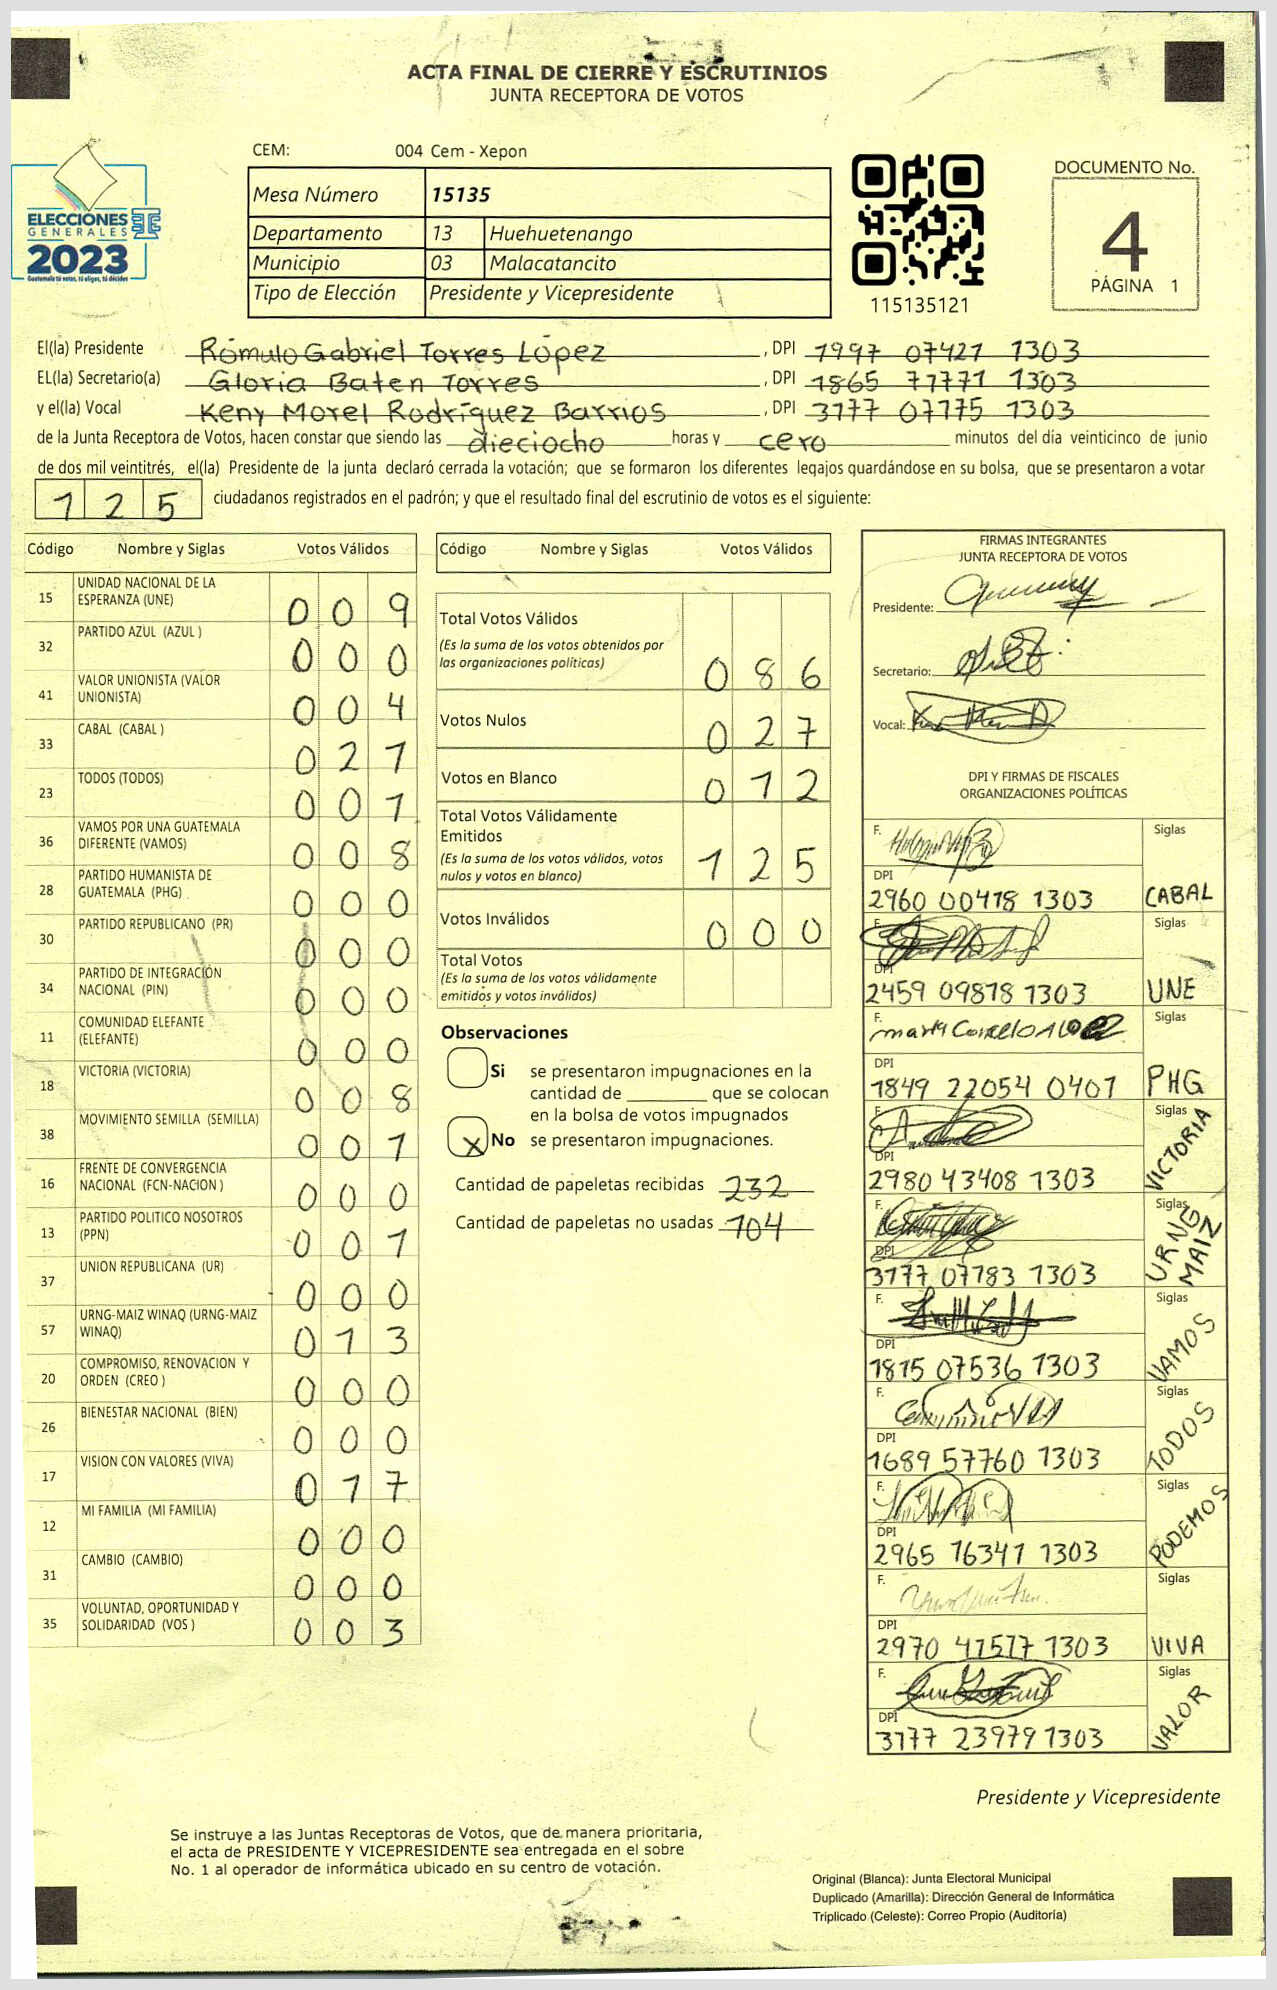 ACTA FINAL DE CIERRE Y ESCRUTINIOS
JUNTA RECEPTORA DE VOTOS
CEM: 004 Cem - Xepon
ELECCIONES
GENERALES
2023
Guatemala tú votas, tú eliges, tú decides
Mesa Número 15135
Departamento 13 Huehuetenango
Municipio 03 Malacatancito
Tipo de Elección Presidente y Vicepresidente
115135121
DOCUMENTO No.
4
PÁGINA 1
El(la) Presidente Rómulo Gabriel Torres López, DPI 1997 07421 1303
EL(la) Secretario(a) Gloria Baten Torres, DPI 1865 77771 1303
y el(la) Vocal Keny Morel Rodríguez Barrios, DPI 3177 07775 1303
de la Junta Receptora de Votos, hacen constar que siendo las dieciocho horas y cero minutos del día veinticinco de junio
de dos mil veintitrés, el(la) Presidente de la junta declaró cerrada la votación; que se formaron los diferentes legajos guardándose en su bolsa, que se presentaron a votar
125 ciudadanos registrados en el padrón; y que el resultado final del escrutinio de votos es el siguiente:
Código Nombre y Siglas Votos Válidos
15 UNIDAD NACIONAL DE LA ESPERANZA (UNE) 009
32 PARTIDO AZUL (AZUL ) 000
41 VALOR UNIONISTA (VALOR UNIONISTA) 004
33 CABAL (CABAL ) 021
23 TODOS (TODOS) 001
36 VAMOS POR UNA GUATEMALA DIFERENTE (VAMOS) 008
28 PARTIDO HUMANISTA DE GUATEMALA (PHG) 000
30 PARTIDO REPUBLICANO (PR) 000
34 PARTIDO DE INTEGRACIÓN NACIONAL (PIN) 000
11 COMUNIDAD ELEFANTE (ELEFANTE) 000
18 VICTORIA (VICTORIA) 008
38 MOVIMIENTO SEMILLA (SEMILLA) 001
16 FRENTE DE CONVERGENCIA NACIONAL (FCN-NACION ) 000
13 PARTIDO POLITICO NOSOTROS (PPN) 001
37 UNION REPUBLICANA (UR) 000
57 URNG-MAIZ WINAQ (URNG-MAIZ WINAQ) 013
20 COMPROMISO, RENOVACION Y ORDEN (CREO ) 000
26 BIENESTAR NACIONAL (BIEN) 000
17 VISION CON VALORES (VIVA) 017
12 MI FAMILIA (MI FAMILIA) 000
31 CAMBIO (CAMBIO) 000
35 VOLUNTAD, OPORTUNIDAD Y SOLIDARIDAD (VOS ) 003
Código Nombre y Siglas Votos Válidos
Total Votos Válidos
(Es la suma de los votos obtenidos por
las organizaciones políticas) 086
Votos Nulos 027
Votos en Blanco 012
Total Votos Válidamente
Emitidos
(Es la suma de los votos válidos, votos
nulos y votos en blanco) 125
Votos Inválidos 000
Total Votos
(Es la suma de los votos válidamente
emitidos y votos inválidos)
Observaciones
Si se presentaron impugnaciones en la
cantidad de ________ que se colocan
en la bolsa de votos impugnados
X No se presentaron impugnaciones.
Cantidad de papeletas recibidas 232
Cantidad de papeletas no usadas 104
FIRMAS INTEGRANTES
JUNTA RECEPTORA DE VOTOS
Presidente:
Secretario:
Vocal:
DPI Y FIRMAS DE FISCALES
ORGANIZACIONES POLÍTICAS
F. Siglas
DPI
2960 00418 1303 CABAL
F. Siglas
DPI
2459 09878 1303 UNE
F. Siglas
DPI
1849 22054 0401 PHG
F. Siglas
DPI
2980 43408 1303 VICTORIA
F. Siglas
DPI
3177 07783 1303 URNG MAIZ
F. Siglas
DPI
1815 07536 1303 VAMOS
F. Siglas
DPI
1689 57760 1303 TODOS
F. Siglas
DPI
2965 16341 1303 PODEMOS
F. Siglas
DPI
2970 41517 1303 VIVA
F. Siglas
DPI
3177 23979 1303 VALOR
Presidente y Vicepresidente
Se instruye a las Juntas Receptoras de Votos, que de manera prioritaria,
el acta de PRESIDENTE Y VICEPRESIDENTE sea entregada en el sobre
No. 1 al operador de informática ubicado en su centro de votación.
Original (Blanca): Junta Electoral Municipal
Duplicado (Amarilla): Dirección General de Informática
Triplicado (Celeste): Correo Propio (Auditoría)